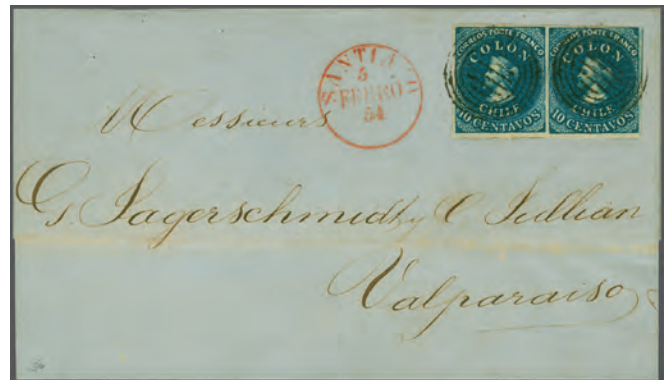 CORREOS PORTE FRANCO
COLON
CHILE
10 CENTAVOS
CORREOS PORTE FRANCO
COLON
CHILE
10 CENTAVOS
SANTIAGO
5
FEBRO
54
Messieurs
G. Sagerschmidt y C Jullian
Valparaiso